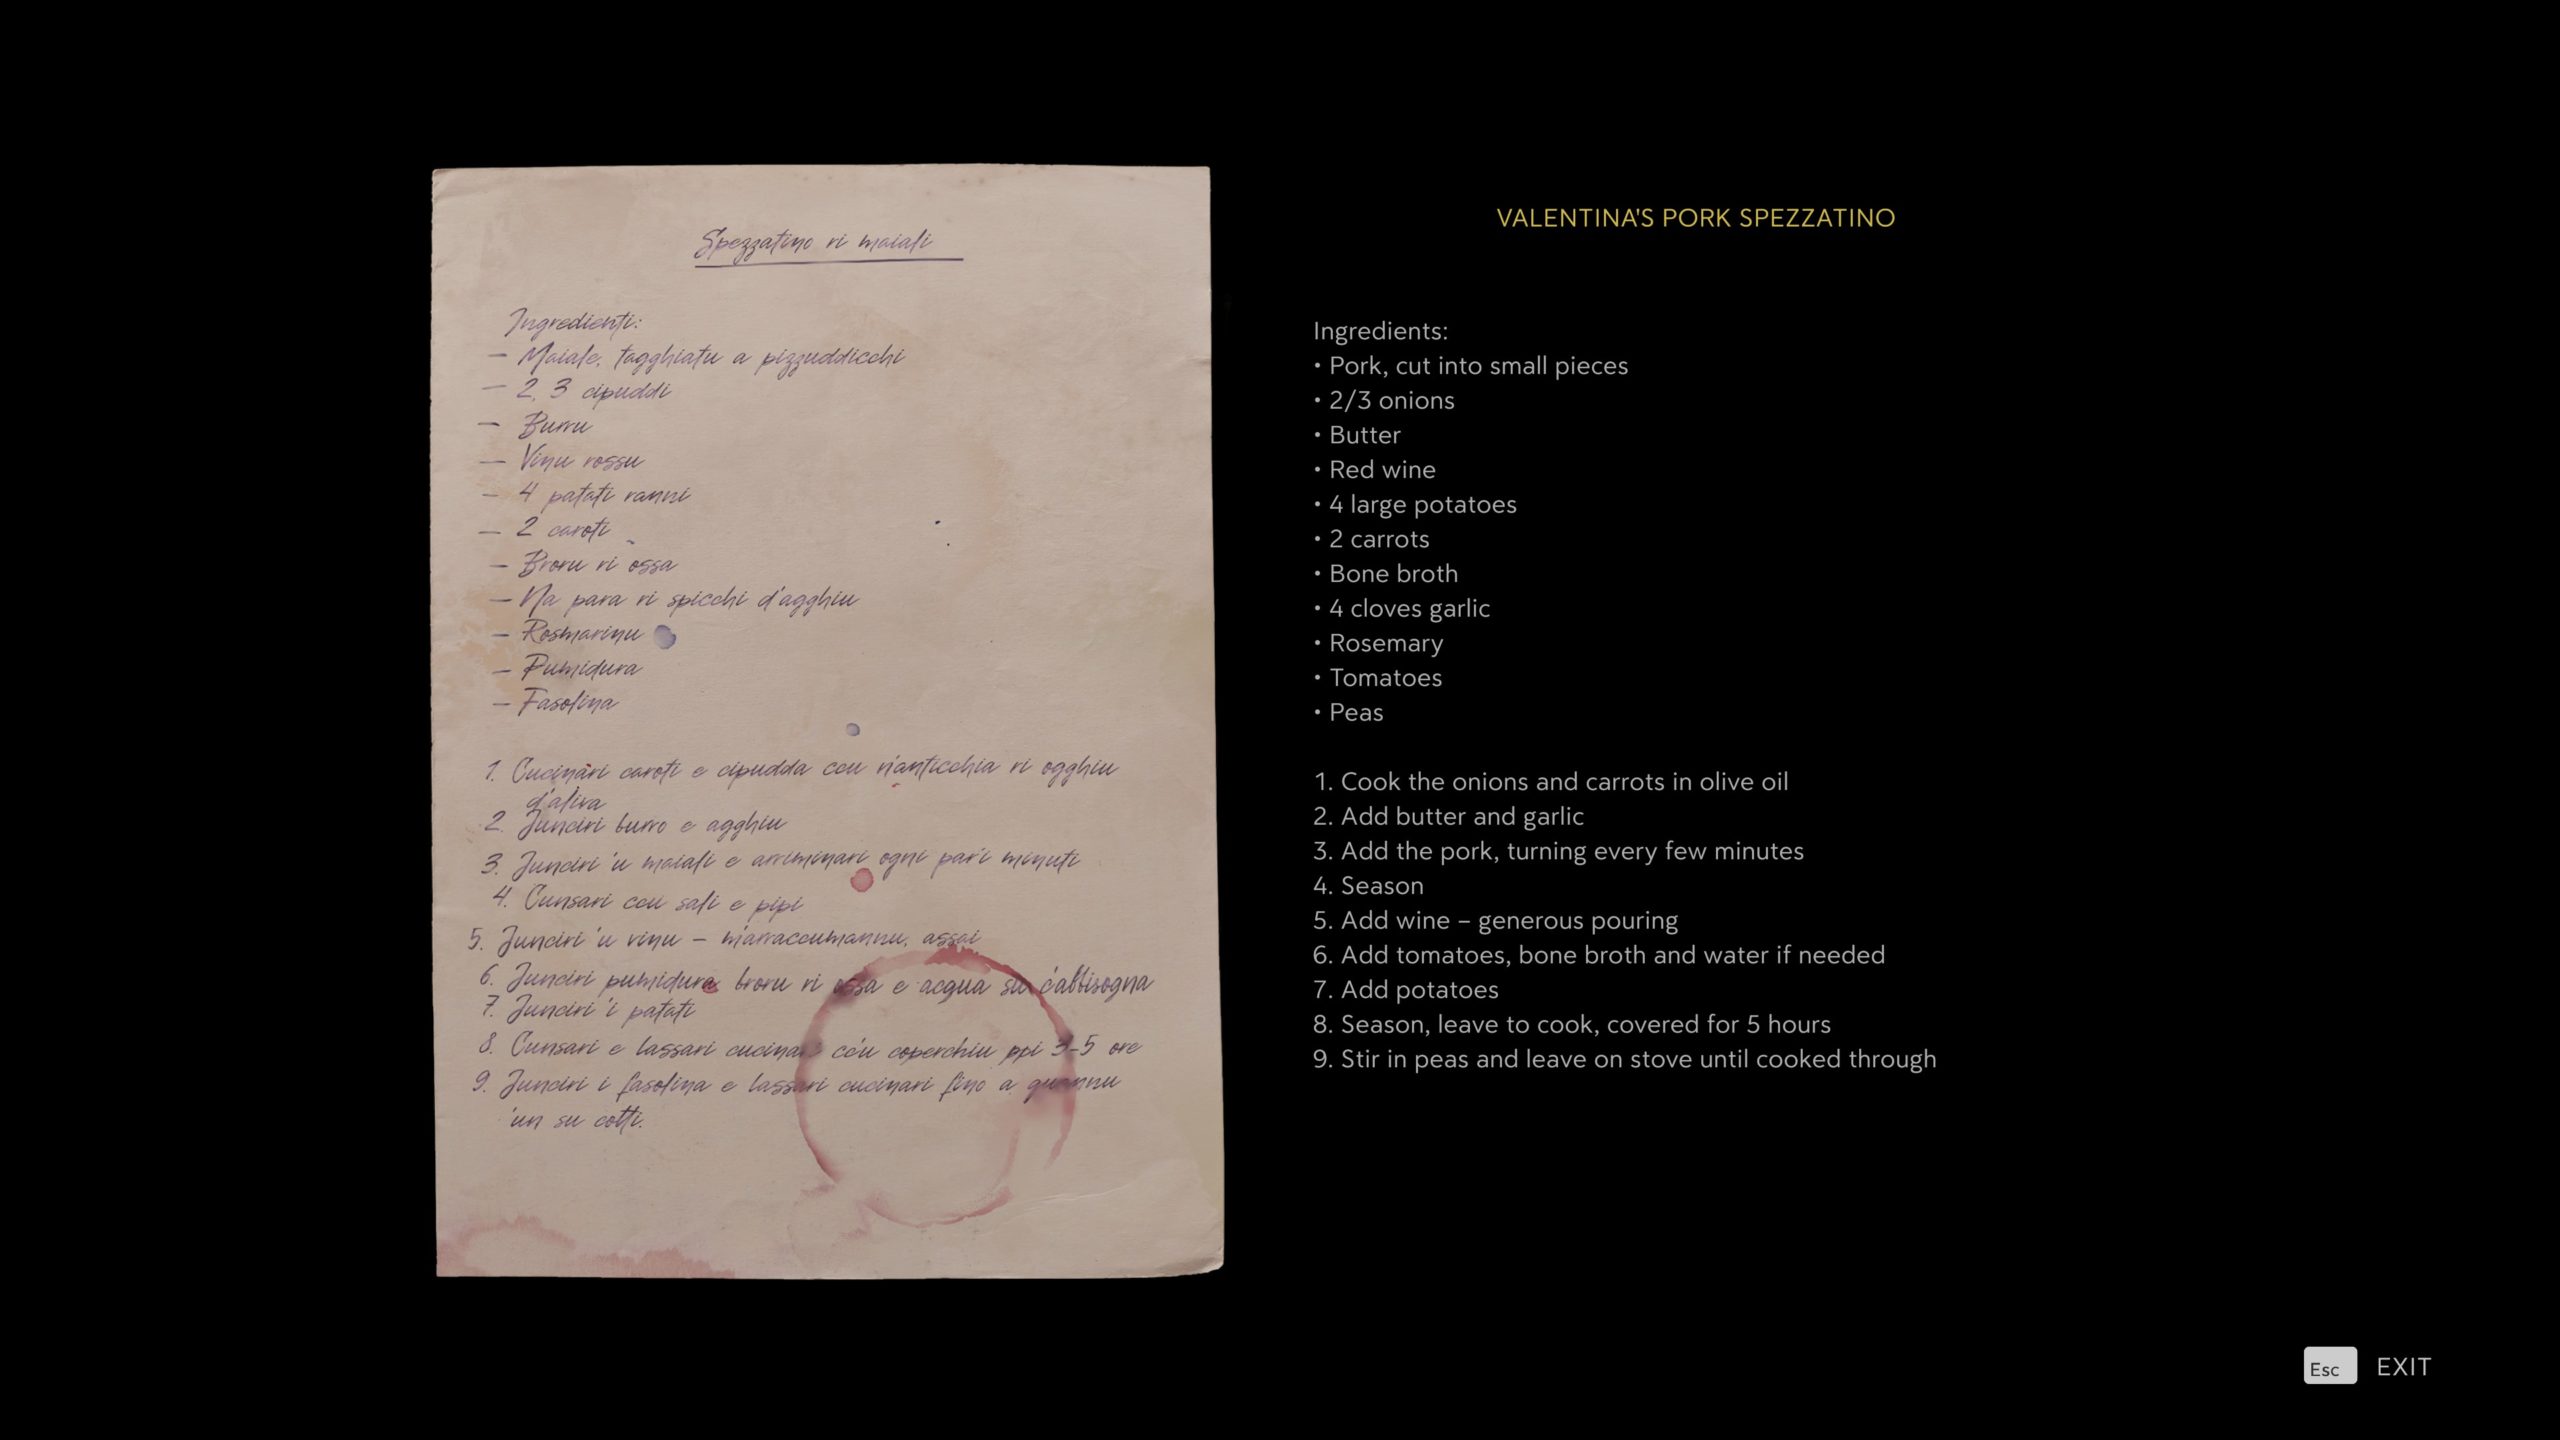 Spezzatino ri maiali
Ingredienti:
- Maiale, tagghiatu a pizzuddicchi
- 2, 3 cipuddi
- Burru
- Vinu rossu
- 4 patati ranni
- 2 caroti
- Broru ri ossa
- Na para ri spicchi d'agghiu
- Rosmarinu
- Pumidura
- Fasolina
1. Cucinari caroti e cipudda ccu n'anticchia ri ogghiu
d'aliva
2. Junciri burro e agghiu
3. Junciri 'u maiali e arriminari ogni pari minuti
4. Cunsari ccu sali e pipi
5. Junciri 'u vinu - m'arraccumannu, assai
6. Junciri pumidura broru ri ossa e acqua su c'abbisogna
7. Junciri 'i patati
8. Cunsari e lassari cucinari cc'u coperchiu ppi 3-5 ore
9. Junciri i fasolina e lassari cucinari fino a quannu
'un su cotti.
VALENTINA'S PORK SPEZZATINO
Ingredients:
• Pork, cut into small pieces
• 2/3 onions
• Butter
• Red wine
• 4 large potatoes
• 2 carrots
• Bone broth
• 4 cloves garlic
• Rosemary
• Tomatoes
• Peas
1. Cook the onions and carrots in olive oil
2. Add butter and garlic
3. Add the pork, turning every few minutes
4. Season
5. Add wine – generous pouring
6. Add tomatoes, bone broth and water if needed
7. Add potatoes
8. Season, leave to cook, covered for 5 hours
9. Stir in peas and leave on stove until cooked through
Esc EXIT